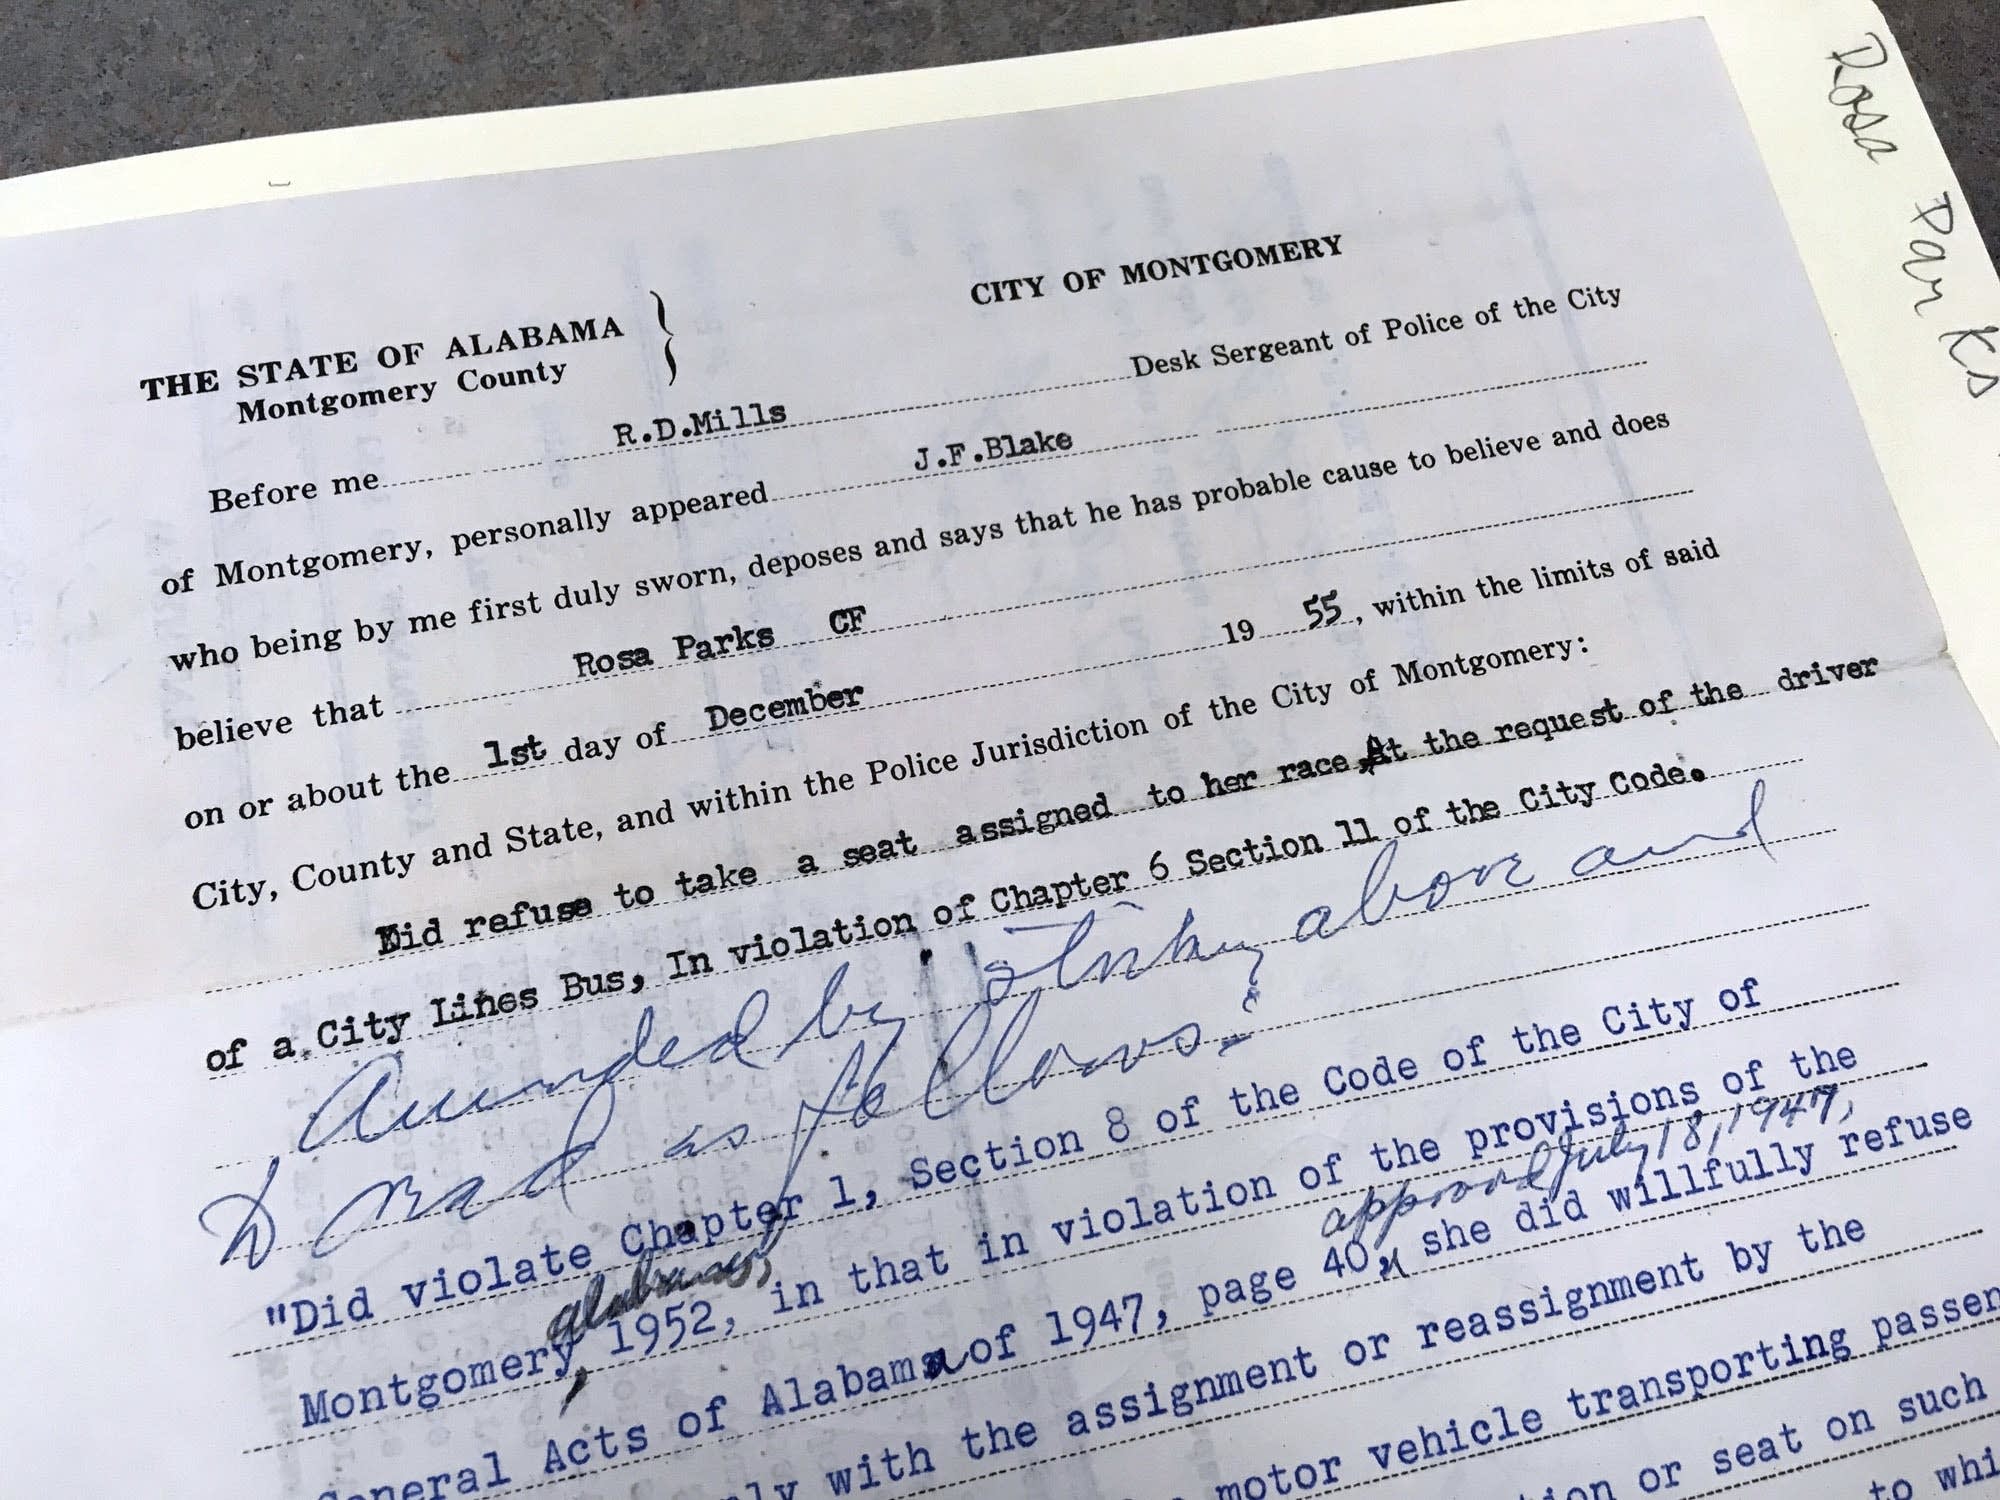 Rosa Parks
THE STATE OF ALABAMA }
Montgomery County
CITY OF MONTGOMERY
Before me R.D.Mills Desk Sergeant of Police of the City
of Montgomery, personally appeared J.F.Blake
who being by me first duly sworn, deposes and says that he has probable cause to believe and does
believe that Rosa Parks CF
on or about the 1st day of December 19 55, within the limits of said
City, County and State, and within the Police Jurisdiction of the City of Montgomery:
Did refuse to take a seat assigned to her race, At the request of the driver
of a City Lines Bus, In violation of Chapter 6 Section 11 of the City Code.
Amended by striking above and
to read as follows:
"Did violate Chapter 1, Section 8 of the Code of the City of
Alabama,
Montgomery, 1952, in that in violation of the provisions of the
approved July 18, 1947,
General Acts of Alabama of 1947, page 40, she did willfully refuse
with the assignment or reassignment by the
motor vehicle transporting passen
or seat on such
to whi